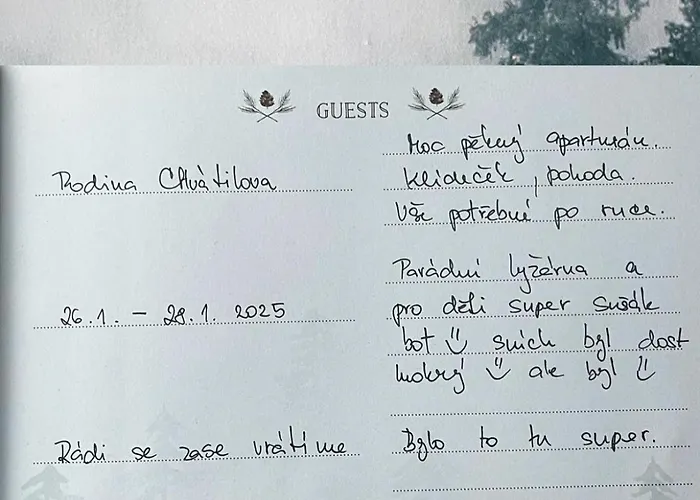 GUESTS
Rodina Chvátilova
26.1. – 28.1. 2025
Rádi se zase vrátíme
Moc pěkný apartmán.
Klideček, pohoda.
Vše potřebné po ruce.
Parádní lyžárna a
pro děti super sušák
bot ☺ sních byl dost
mokrý ☺ ale byl ☺
Bylo to tu super.